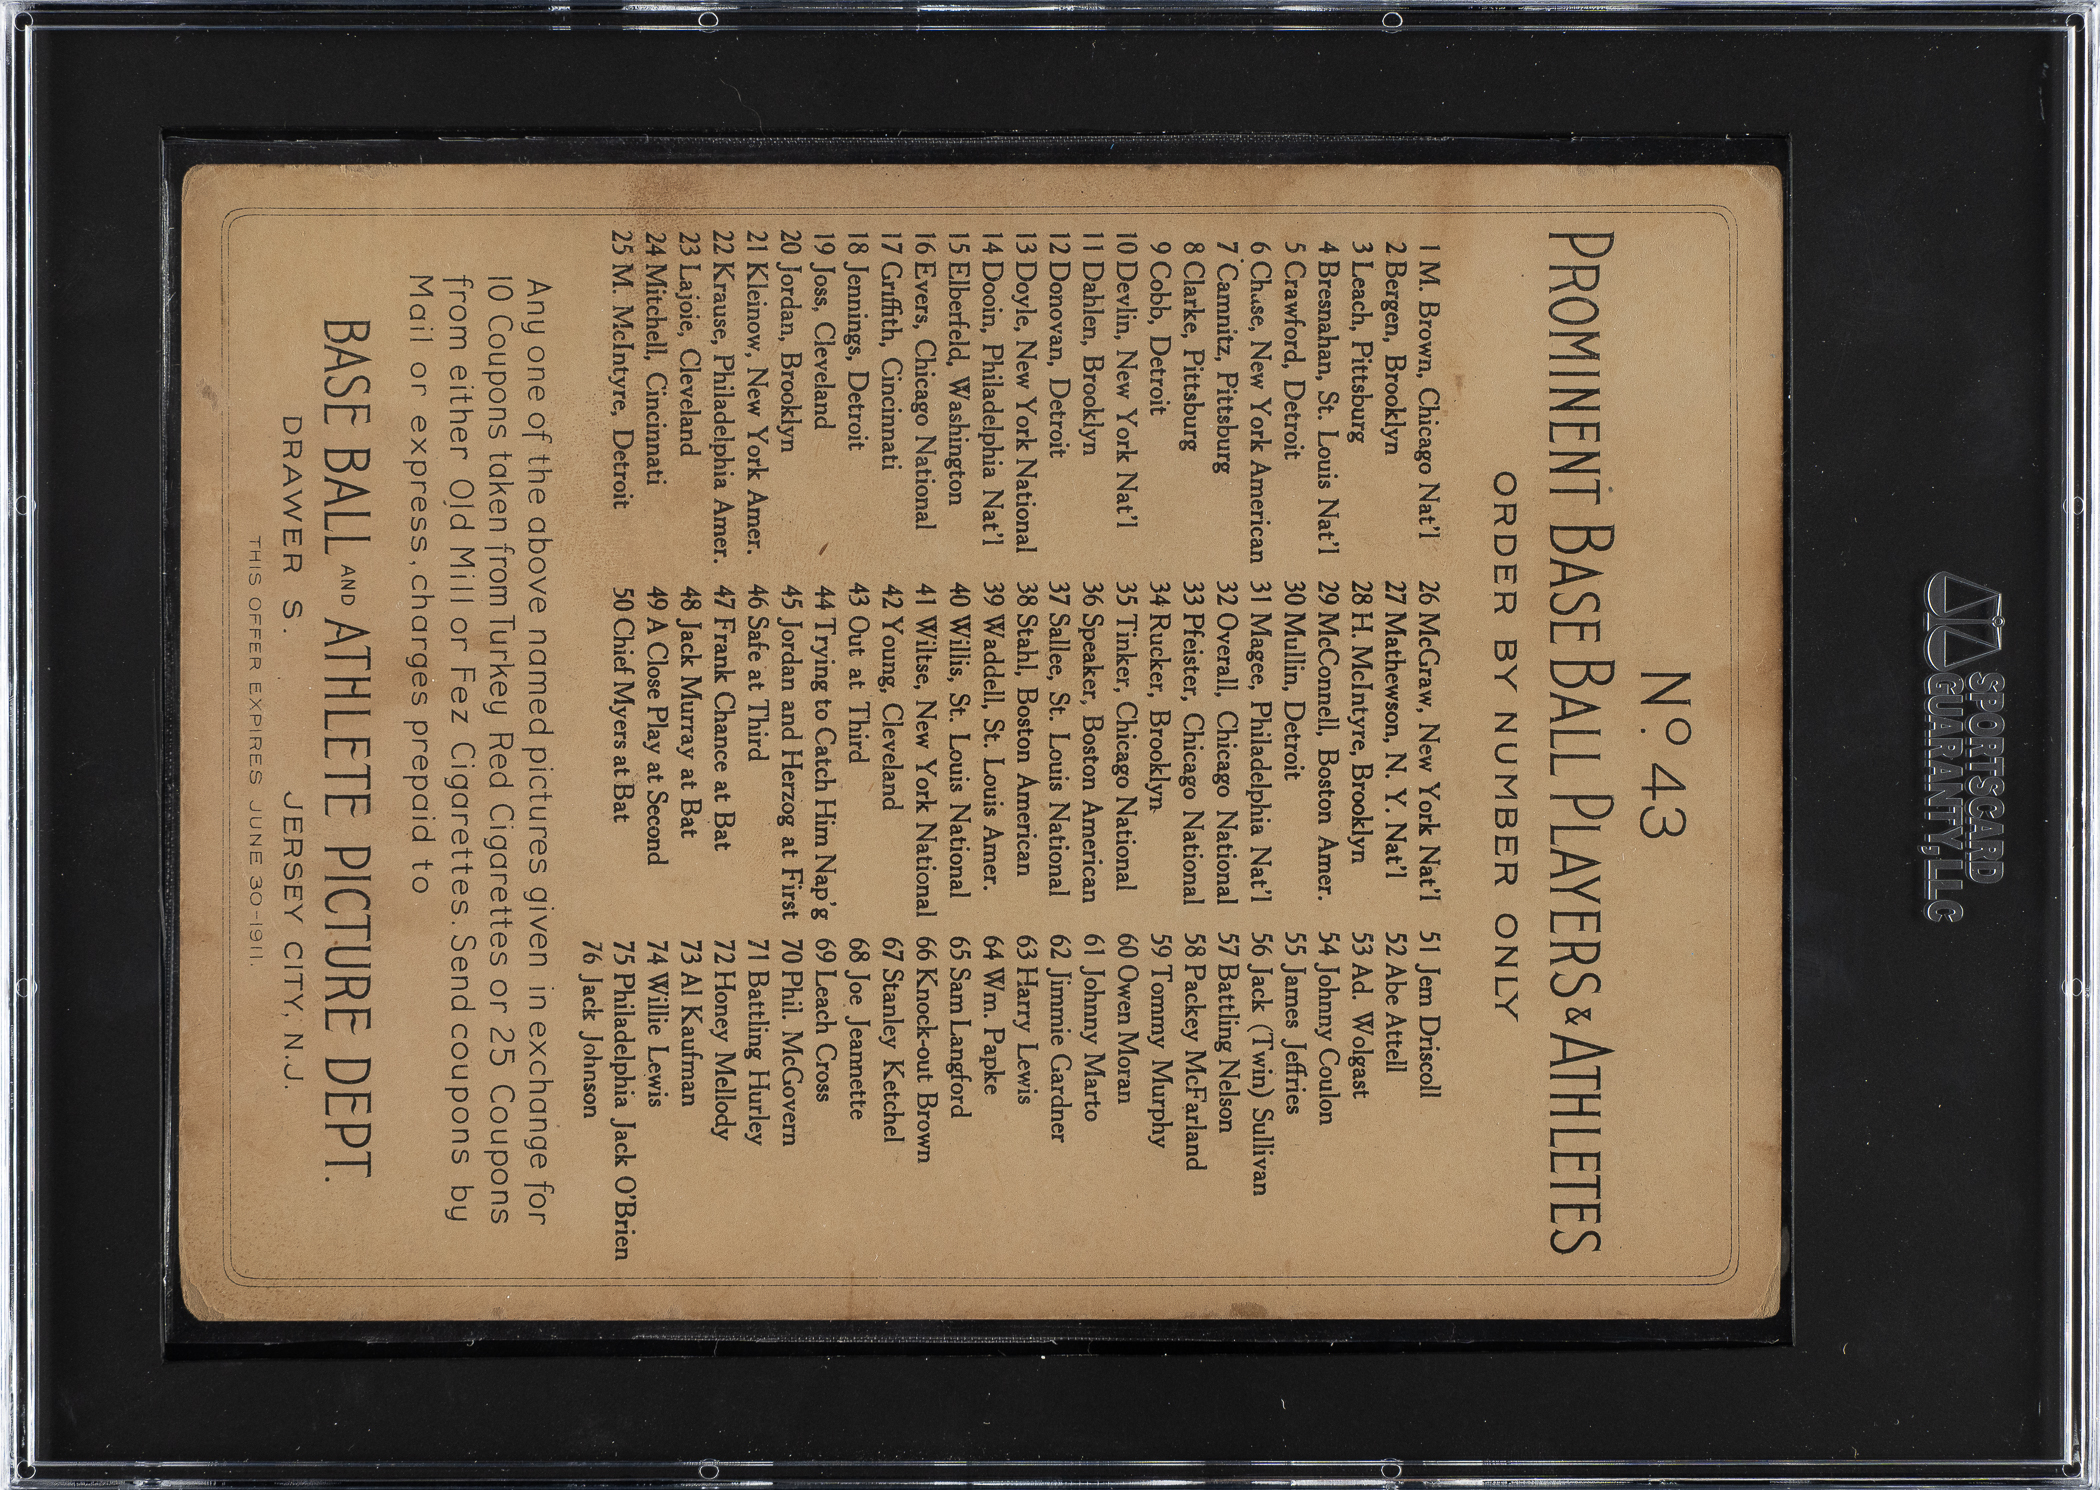 No. 43
PROMINENT BASE BALL PLAYERS & ATHLETES
ORDER BY NUMBER ONLY
1 M. Brown, Chicago Nat'l
2 Bergen, Brooklyn
3 Leach, Pittsburg
4 Bresnahan, St. Louis Nat'l
5 Crawford, Detroit
6 Chase, New York American
7 Camnitz, Pittsburg
8 Clarke, Pittsburg
9 Cobb, Detroit
10 Devlin, New York Nat'l
11 Dahlen, Brooklyn
12 Donovan, Detroit
13 Doyle, New York National
14 Dooin, Philadelphia Nat'l
15 Elberfeld, Washington
16 Evers, Chicago National
17 Griffith, Cincinnati
18 Jennings, Detroit
19 Joss, Cleveland
20 Jordan, Brooklyn
21 Kleinow, New York Amer.
22 Krause, Philadelphia Amer.
23 Lajoie, Cleveland
24 Mitchell, Cincinnati
25 M. McIntyre, Detroit
26 McGraw, New York Nat'l
27 Mathewson, N. Y. Nat'l
28 H. McIntyre, Brooklyn
29 McConnell, Boston Amer.
30 Mullin, Detroit
31 Magee, Philadelphia Nat'l
32 Overall, Chicago National
33 Pfeister, Chicago National
34 Rucker, Brooklyn
35 Tinker, Chicago National
36 Speaker, Boston American
37 Sallee, St. Louis National
38 Stahl, Boston American
39 Waddell, St. Louis Amer.
40 Willis, St. Louis National
41 Wiltse, New York National
42 Young, Cleveland
43 Out at Third
44 Trying to Catch Him Nap'g
45 Jordan and Herzog at First
46 Safe at Third
47 Frank Chance at Bat
48 Jack Murray at Bat
49 A Close Play at Second
50 Chief Myers at Bat
51 Jem Driscoll
52 Abe Attell
53 Ad. Wolgast
54 Johnny Coulon
55 James Jeffries
56 Jack (Twin) Sullivan
57 Battling Nelson
58 Packey McFarland
59 Tommy Murphy
60 Owen Moran
61 Johnny Marto
62 Jimmie Gardner
63 Harry Lewis
64 Wm. Papke
65 Sam Langford
66 Knock-out Brown
67 Stanley Ketchel
68 Joe Jeannette
69 Leach Cross
70 Phil. McGovern
71 Battling Hurley
72 Honey Mellody
73 Al Kaufman
74 Willie Lewis
75 Philadelphia Jack O'Brien
76 Jack Johnson
Any one of the above named pictures given in exchange for
10 Coupons taken from Turkey Red Cigarettes or 25 Coupons
from either Old Mill or Fez Cigarettes. Send coupons by
Mail or express, charges prepaid to
BASE BALL AND ATHLETE PICTURE DEPT.
DRAWER S. JERSEY CITY, N.J.
THIS OFFER EXPIRES JUNE 30-1911.
SPORTSCARD
GUARANTY, LLC